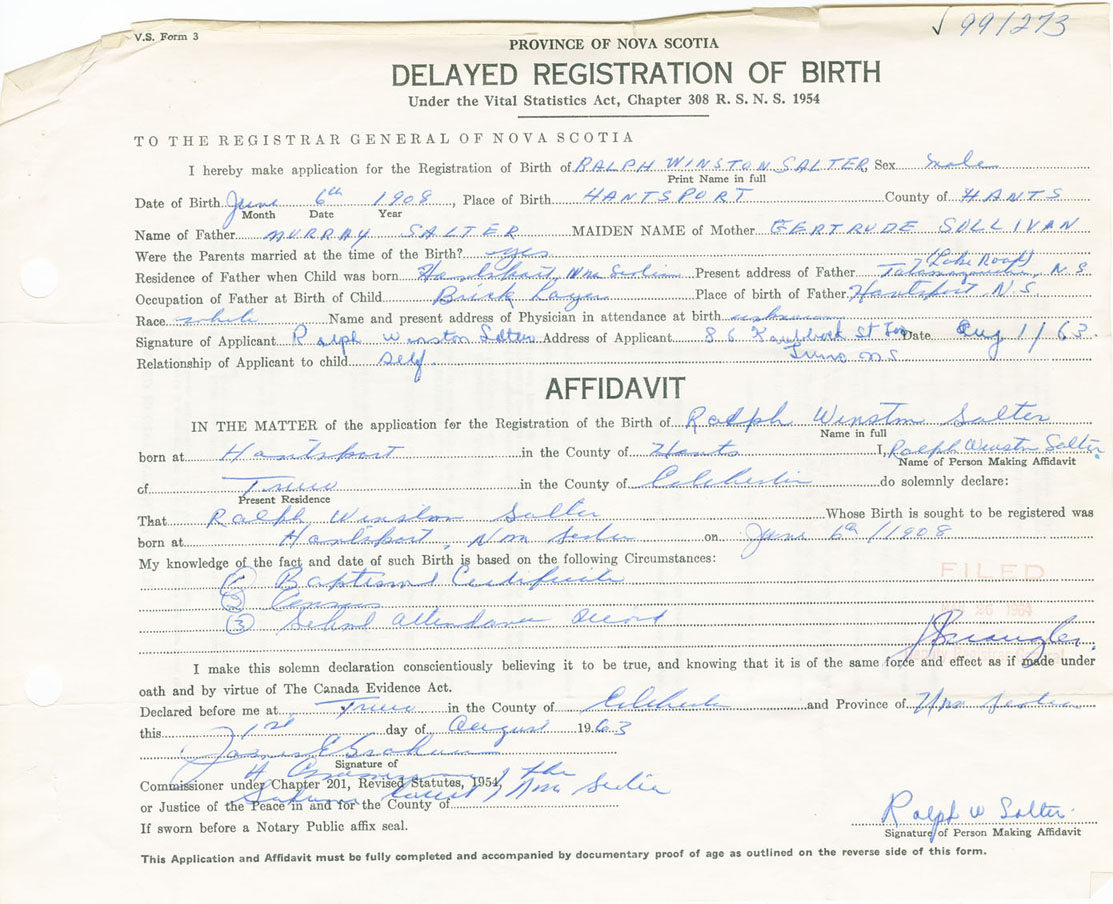 V.S. Form 3
√ 991273
PROVINCE OF NOVA SCOTIA
DELAYED REGISTRATION OF BIRTH
Under the Vital Statistics Act, Chapter 308 R. S. N. S. 1954
TO THE REGISTRAR GENERAL OF NOVA SCOTIA
I hereby make application for the Registration of Birth of RALPH WINSTON SALTER, Sex male
Print Name in full
Date of Birth June 6th 1908, Place of Birth HANTSPORT County of HANTS
Month Date Year
Name of Father MURRAY SALTER MAIDEN NAME of Mother GERTRUDE SULLIVAN
Were the Parents married at the time of the Birth? yes
(Lake Road)
Residence of Father when Child was born Hantsport, Nova Scotia Present address of Father Tatamagouche, N.S
Occupation of Father at Birth of Child Brick Layer Place of birth of Father Hantsport, N.S
Race white Name and present address of Physician in attendance at birth unknown
Signature of Applicant Ralph Winston Salter Address of Applicant 86 St Date Aug 1/63.
Truro N.S
Relationship of Applicant to child self.
AFFIDAVIT
IN THE MATTER of the application for the Registration of the Birth of Ralph Winston Salter
Name in full
born at Hantsport in the County of Hants I, Ralph Winston Salter
Name of Person Making Affidavit
of Truro in the County of Colchester do solemnly declare:
Present Residence
That Ralph Winston Salter Whose Birth is sought to be registered was
born at Hantsport, Nova Scotia on June 6th/1908
My knowledge of the fact and date of such Birth is based on the following Circumstances:
(1) Baptismal Certificate
FILED
(2) Census
26 1964
(3) School attendance record
I make this solemn declaration conscientiously believing it to be true, and knowing that it is of the same force and effect as if made under
oath and by virtue of The Canada Evidence Act.
Declared before me at Truro in the County of Colchester and Province of Nova Scotia
this 1st day of August 1963
James E Graham
Signature of
A Commissioner of the
Commissioner under Chapter 201, Revised Statutes, 1954,
Supreme Court of Nova Scotia
or Justice of the Peace in and for the County of
If sworn before a Notary Public affix seal.
Ralph W Salter.
Signature of Person Making Affidavit
This Application and Affidavit must be fully completed and accompanied by documentary proof of age as outlined on the reverse side of this form.